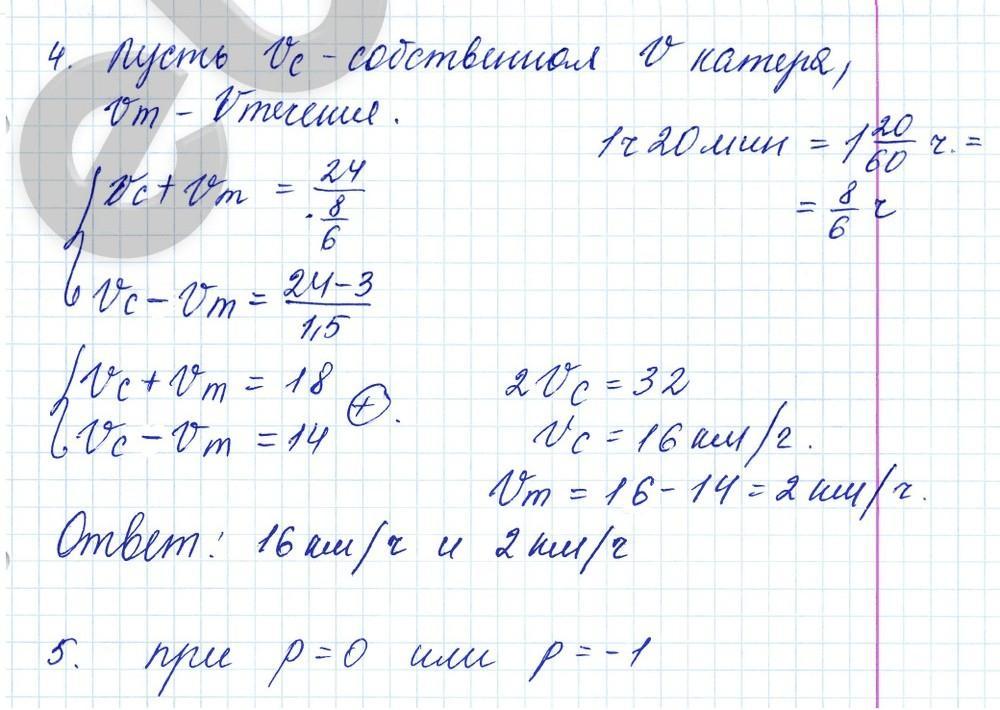 4. Пусть Vс - собственная V катера,
Vт - Vтечения.
1ч 20 мин = 1 20/60 ч. =
= 8/6 ч
Vс + Vт = 24 / 8/6
Vс - Vт = 24-3 / 1,5
Vс + Vт = 18
Vс - Vт = 14
+.
2Vс = 32
Vс = 16 км/ч.
Vт = 16 - 14 = 2 км/ч.
Ответ: 16 км/ч и 2 км/ч
5. при p = 0 или p = -1